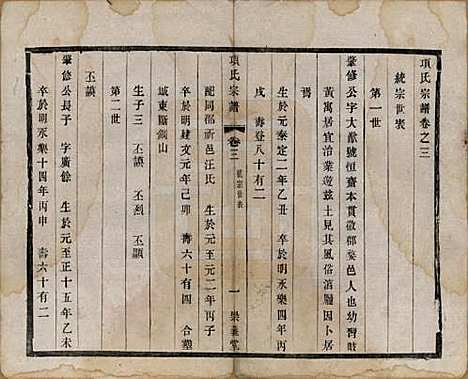 項氏宗譜卷之三
統宗世表
第一世
肇修公字大猷號恒齋本貫徽郡婺邑人也幼習
黃寓居宜治業遊兹土見其風俗淳龐因卜居
焉
生於元泰定二年乙丑 卒於明永樂四年丙
戌 壽登八十有二
項氏宗譜 卷三 統宗世表 一 樂善堂
配同邵新邑汪氏 生於元至元二年丙子
卒於明建文元年己卯 壽六十有四 合塟
城東鳳銅山
生子三 丕謨 丕烈 丕顯
第二世
丕謨
肇修公長子 字廣餘 生於元至正十五年乙未
卒於明永樂十四年丙申 壽六十有二